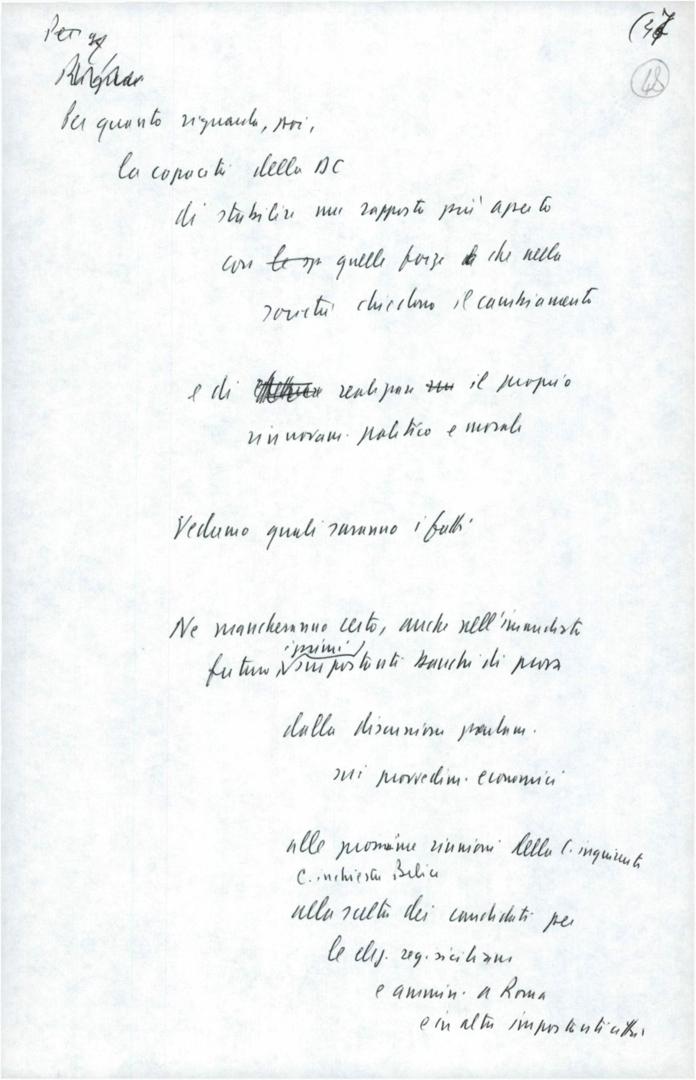 (47
48
Per quanto riguarda, poi,
la capacità della DC
di stabilire un rapporto più aperto
con le sp quelle forze che nella
società chiedono il cambiamento
e di realizzare il proprio
rinnovam. politico e morale
Vedremo quali saranno i fatti
Ne mancheranno certo, anche nell'immediato
i primi
futuro importanti banchi di prova
dalla discussione parlam.
sui provvedim. economici
alle prossime riunioni della C. inquirente
C. inchiesta Belice
alla scelta dei candidati per
le elez. reg. siciliane
e ammin. a Roma
e in altre importanti città